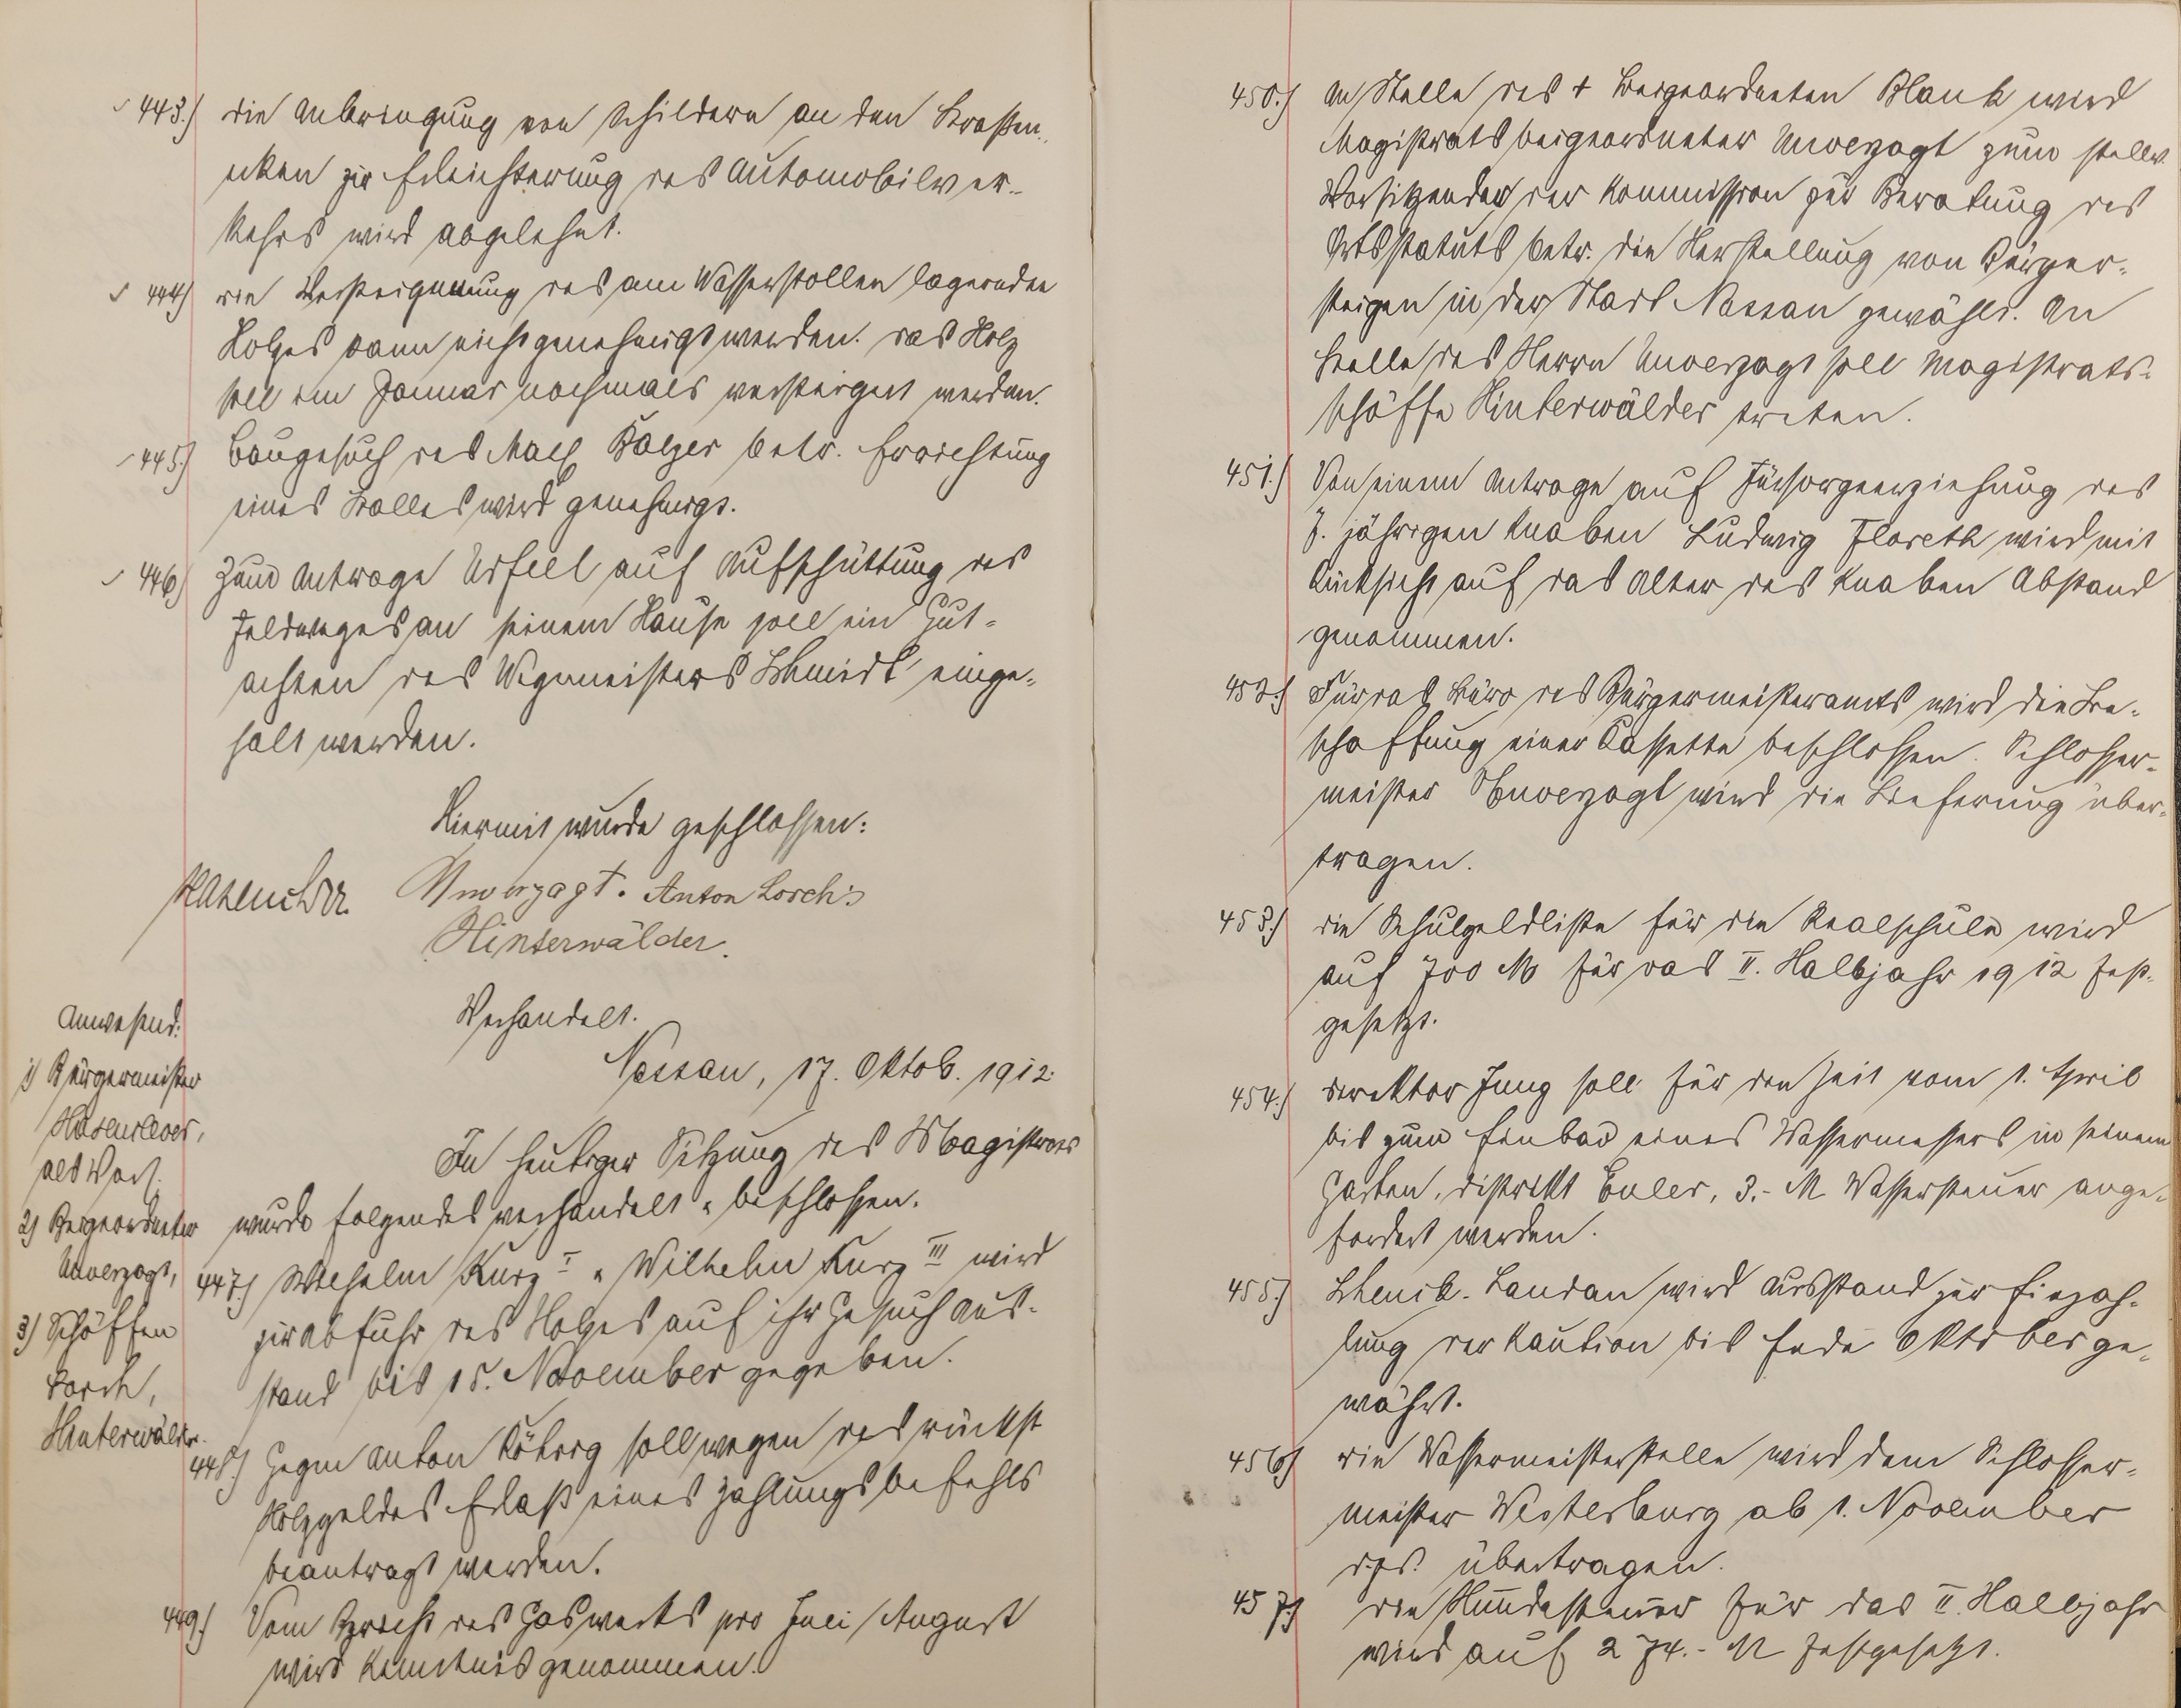 443.) Die Anbringung von Schildern an den Straßen-
ecken zur Erleichterung des Automobilver-
kehrs wird abgelehnt.
444.) Die Versteigerung des am Wasserstollen lagernden
Holzes kann nicht genehmigt werden. Das Holz
soll im Januar nochmals versteigert werden.
445.) Baugesuch des Balzer betr. Errichtung
eines Stalles wird genehmigt.
446.) Zum Antrage Urfell auf Aufschüttung des
Feldweges an seinem Hause soll ein Gut-
achten des Wegemeisters Schmidt einge-
holt werden.
Hiermit wurde geschlossen:
Hasenclever. Unverzagt. Anton Lorch
Hinterwälder.
Verhandelt.
Nassau, 17. Oktob. 1912.
Anwesend:
1) Bürgermeister
Hasenclever,
als Vors.
2) Beigeordneter
Unverzagt,
3) Schöffen
Lorch,
Hinterwälder.
In heutiger Sitzung des Magistrats
wurde folgendes verhandelt u. beschlossen.
447.) Wilhelm Kurz I u. Wilhelm Kurz III wird
zur Abfuhr des Holzes auf ihr Gesuch Aus-
stand bis 15. November gegeben.
448.) Gegen Anton soll wegen des rückst.
Holzgeldes Erlaß eines Zahlungsbefehls
beantragt werden.
449.) Vom Bericht des Gaswerks pro Juli/August
wird Kenntnis genommen.
450.) An Stelle des † Beigeordneten Blank wird
Magistratsbeigeordneter Unverzagt zum stellv.
Vorsitzenden der Kommission zur Beratung des
Ortsstatuts betr. die Herstellung von Bürger-
steigen in der Stadt Nassau gewählt. An
Stelle des Herrn Unverzagt soll Magistrats-
schöffe Hinterwälder treten.
451.) Von einem Antrage auf Fürsorgeerziehung des
7. jährigen Knaben Ludwig Floreth wird mit
Rücksicht auf das Alter des Knaben Abstand
genommen.
452.) Für das Büro des Bürgermeisteramts wird die Be-
schaffung einer Cassette beschlossen. Schlosser-
meister Unverzagt wird die Lieferung über-
tragen.
453.) Die Schulgeldliste für die Realschule wird
auf 700 M für das II. Halbjahr 1912 fest-
gesetzt.
454.) Direktor Jung soll für die Zeit vom 1. April
bis zum Einbau eines Wassermessers in seinem
Garten, Distrikt Euler, 3.- M Wassersteuer ange-
fordert werden.
455.) Landau wird Ausstand zur Einzah-
lung der Kaution bis Ende Oktober ge-
währt.
456.) Die Wassermeisterstelle wird dem Schlosser-
meister Westerburg ab 1. November
ds. Js. übertragen.
457.) Die Hundesteuer für das II. Halbjahr
wird auf 274.- M festgesetzt.